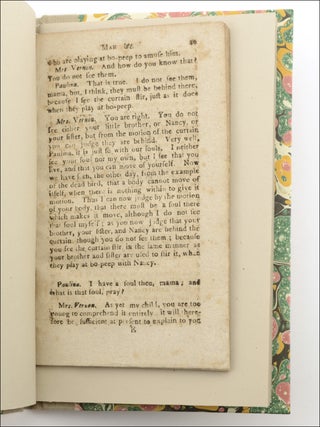 MAM &c. 20
who are playing at bo-peep to amuse him.
Mrs. Vernon. And how do you know that?
You do not see them.
Paulina. That is true. I do not see them,
mama, but, I think, they must be behind there,
because I see the curtain stir, just as it does
when they play at bo-peep.
Mrs. Vernon. You are right. You do not
see either your little brother, or Nancy, or
your sister, but from the motion of the curtain
you can judge they are behind. Very well,
Paulina, it is just so with our souls. I neither
see your soul nor my own, but I see that you
live, and that you can move of yourself. Now
we have seen, the other day, from the example
of the dead bird, that a body cannot move of
itself, when there is nothing within to give it
motion. Thus I can now judge by the motion
of your body, that there must be a soul there
which makes it move, although I do not see
that soul myself; as you now judge that your
brother, your sister, and Nancy are behind the
curtain, though you do not see them; because
you see the curtain stir in the same manner as
your brother and sister are used to stir it, when
they play at bo peep with Nancy.
Paulina. I have a soul then, mama; and
what is that soul, pray?
Mrs. Vernon. As yet my child, you are too
young to comprehend it entirely. it will there-
fore be sufficient at present to explain to you